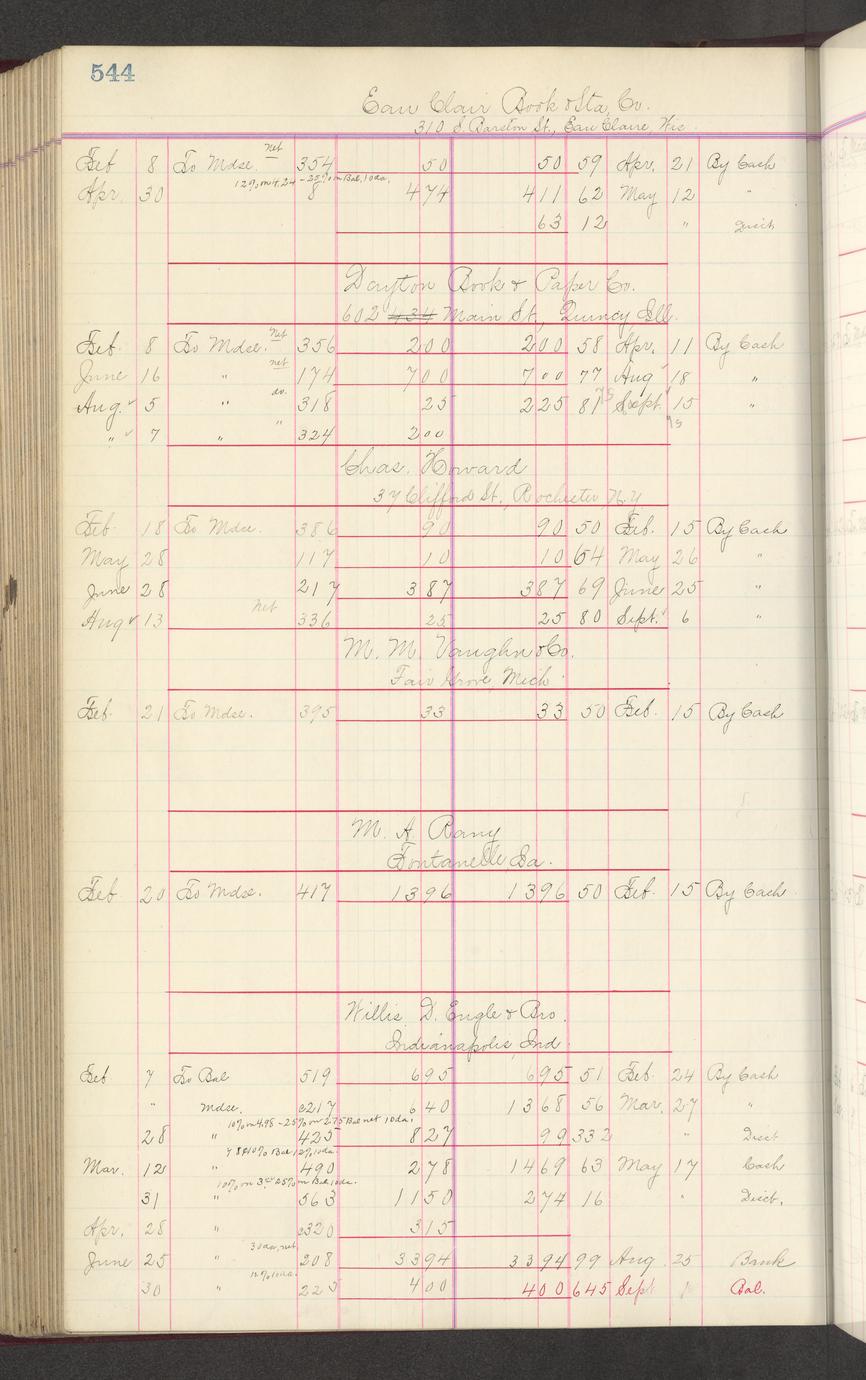 544
Eau Clair Book & Sta. Co.
310 S. Barston St., Eau Claire, Wis.
Feb 8 To Mdse. net 354 50 50 59 Apr. 21 By Cash
12% on 4.24 - 25% on Bal. 10 da.
Apr. 30 8 474 411 62 May 12 "
63 12 " Disct.
Dayton Book & Paper Co.
602 434 Main St., Quincy Ill.
Feb. 8 To Mdse. Net 356 200 200 58 Apr. 11 By Cash
June 16 " net 174 700 700 77 Aug 18 "
Aug. 5 " do. 318 25 225 81 Sept. 15 "
" 7 " " 324 200
Chas. Howard
37 Clifford St., Rochester N.Y
Feb. 18 To Mdse. 386 90 90 50 Feb. 15 By Cash
May 28 117 10 10 64 May 26 "
June 28 217 387 387 69 June 25 "
Aug 13 Net 336 25 25 80 Sept. 6 "
M. M. Vaughn & Co.
Fair Grove, Mich.
Feb. 21 To Mdse. 395 33 33 50 Feb. 15 By Cash
M. A. Rany
Fontanelle, Ia.
Feb 20 To Mdse. 417 1396 1396 50 Feb. 15 By Cash
Willis D. Engle & Bro.
Indianapolis, Ind.
Feb 7 To Bal 519 695 695 51 Feb. 24 By Cash
" Mdse. c217 640 1368 56 Mar. 27 "
10% on 4.98 - 25% on 2.75 Bal net 10 da.
28 " 425 827 99 332 " Disct
Bal 12% 10 da.
Mar. 12 " 490 278 1469 63 May 17 Cash
10% on 3.00 25% on Bal 10 da.
31 " 563 1150 274 16 " Disct.
Apr. 28 " c320 315
30 da. net
June 25 " 208 3394 3394 99 Aug. 25 Bank
12% 10 da.
30 " 225 400 400 645 Sept 1 Bal.